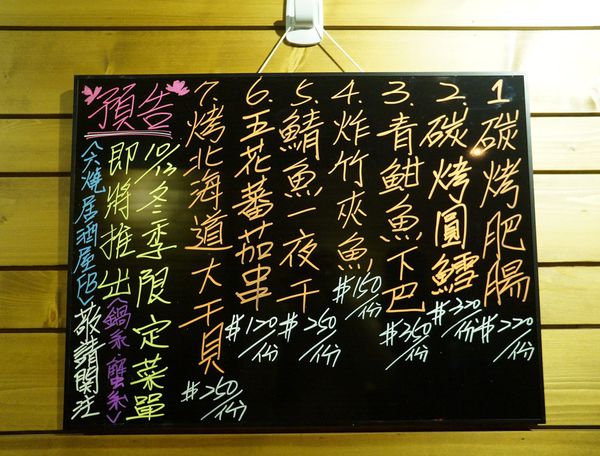 1.碳烤肥腸 #220/份
2.碳烤圓鱈 #320/份
3.青魽魚下巴 #350/份
4.炸竹夾魚 #150/份
5.鯖魚一夜干 #250/份
6.五花蕃茄串 #120/份
7.烤北海道大干貝 #250/份
預告
10/13冬季限定菜單
即將推出〈鍋系.蟹系〉
〈六燒居酒屋FB〉敬請関注